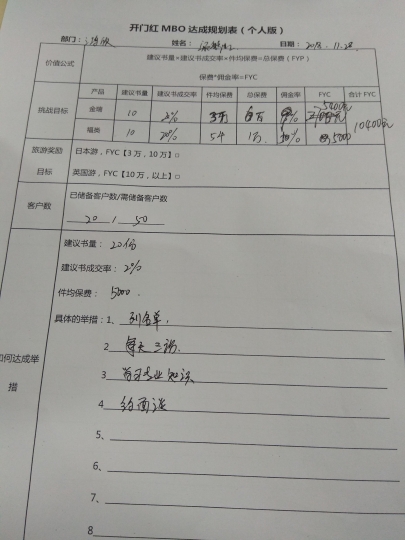 开门红 MBO 达成规划表（个人版）
部门： 姓名： 日期：2018.11.28
价值公式 建议书量×建议书成交率×件均保费=总保费（FYP）
保费*佣金率=FYC
挑战目标 产品 建议书量 建议书成交率 件均保费 总保费 佣金率 FYC 合计 FYC
10 2% 3万 5400元
10 20% 1万 5000 10400元
旅游奖励 日本游，FYC【3 万，10 万】□
目标 英国游，FYC【10 万，以上】□
客户数 已储备客户数/需储备客户数
20 / 50
建议书量：20份
建议书成交率：2%
件均保费：5000.
具体的举措：1、列名单.
如何达成举措 2、每天三访.
3、学习专业知识
4、约面谈
5、
6、
7、
8